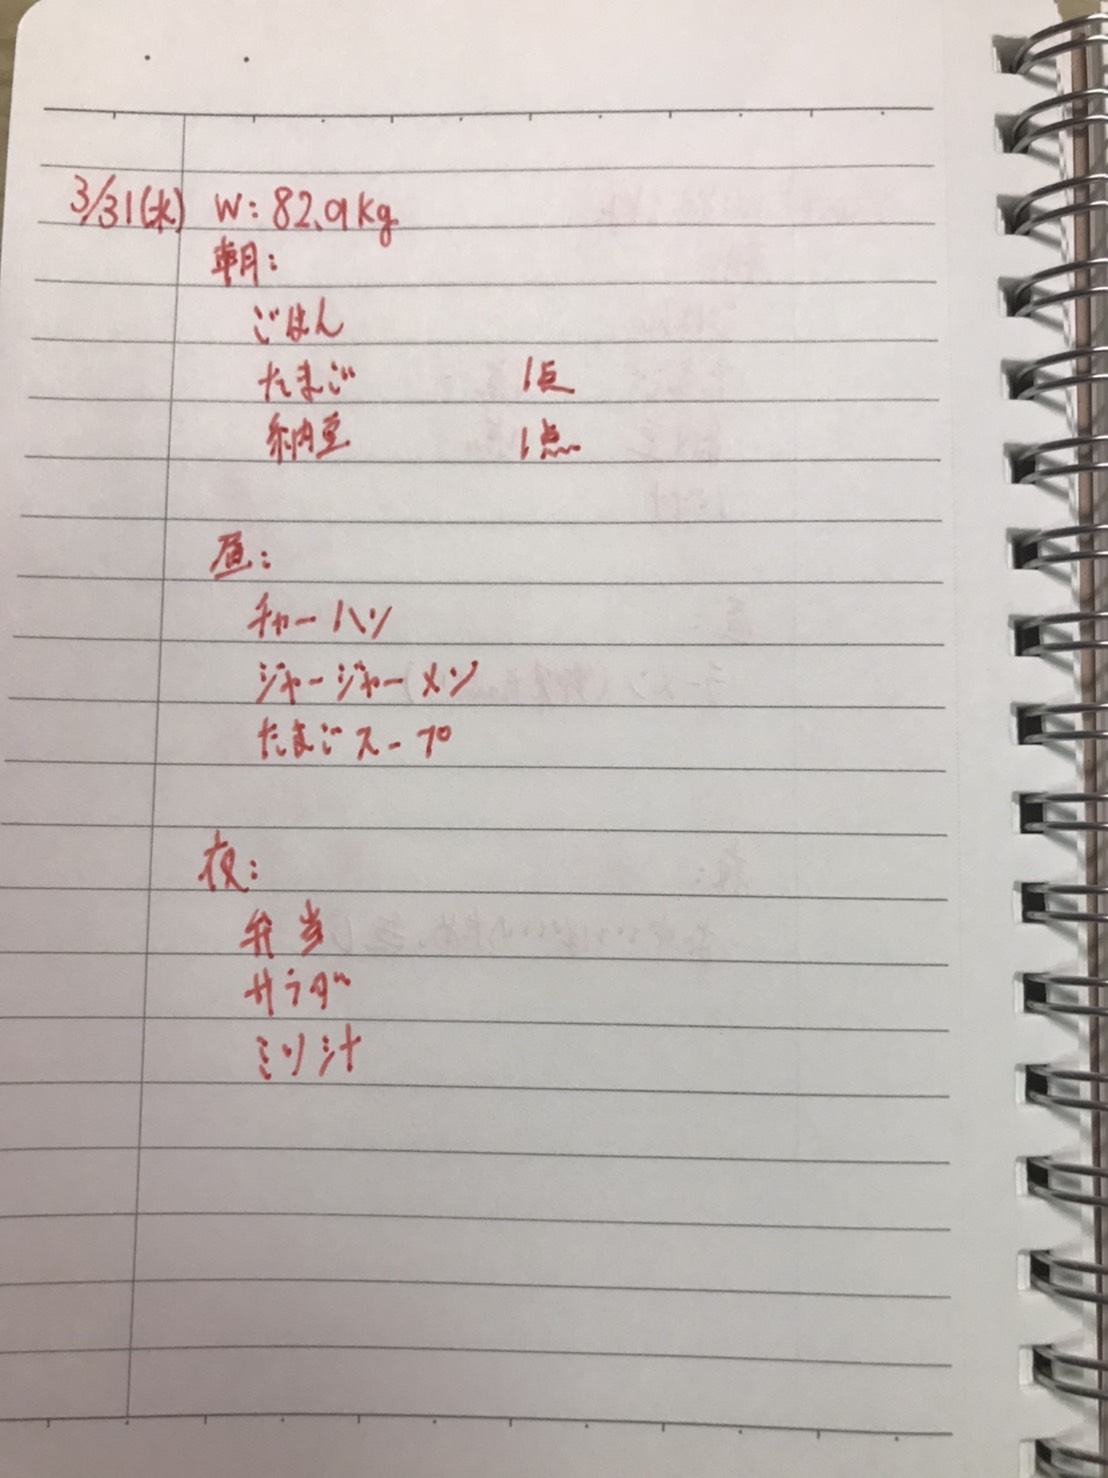 3/31(水) W: 82.9kg
朝:
ごはん
たまご 1点
納豆 1点
昼:
チャーハン
ジャージャーメン
たまごスープ
夜:
弁当
サラダ
ミソ汁